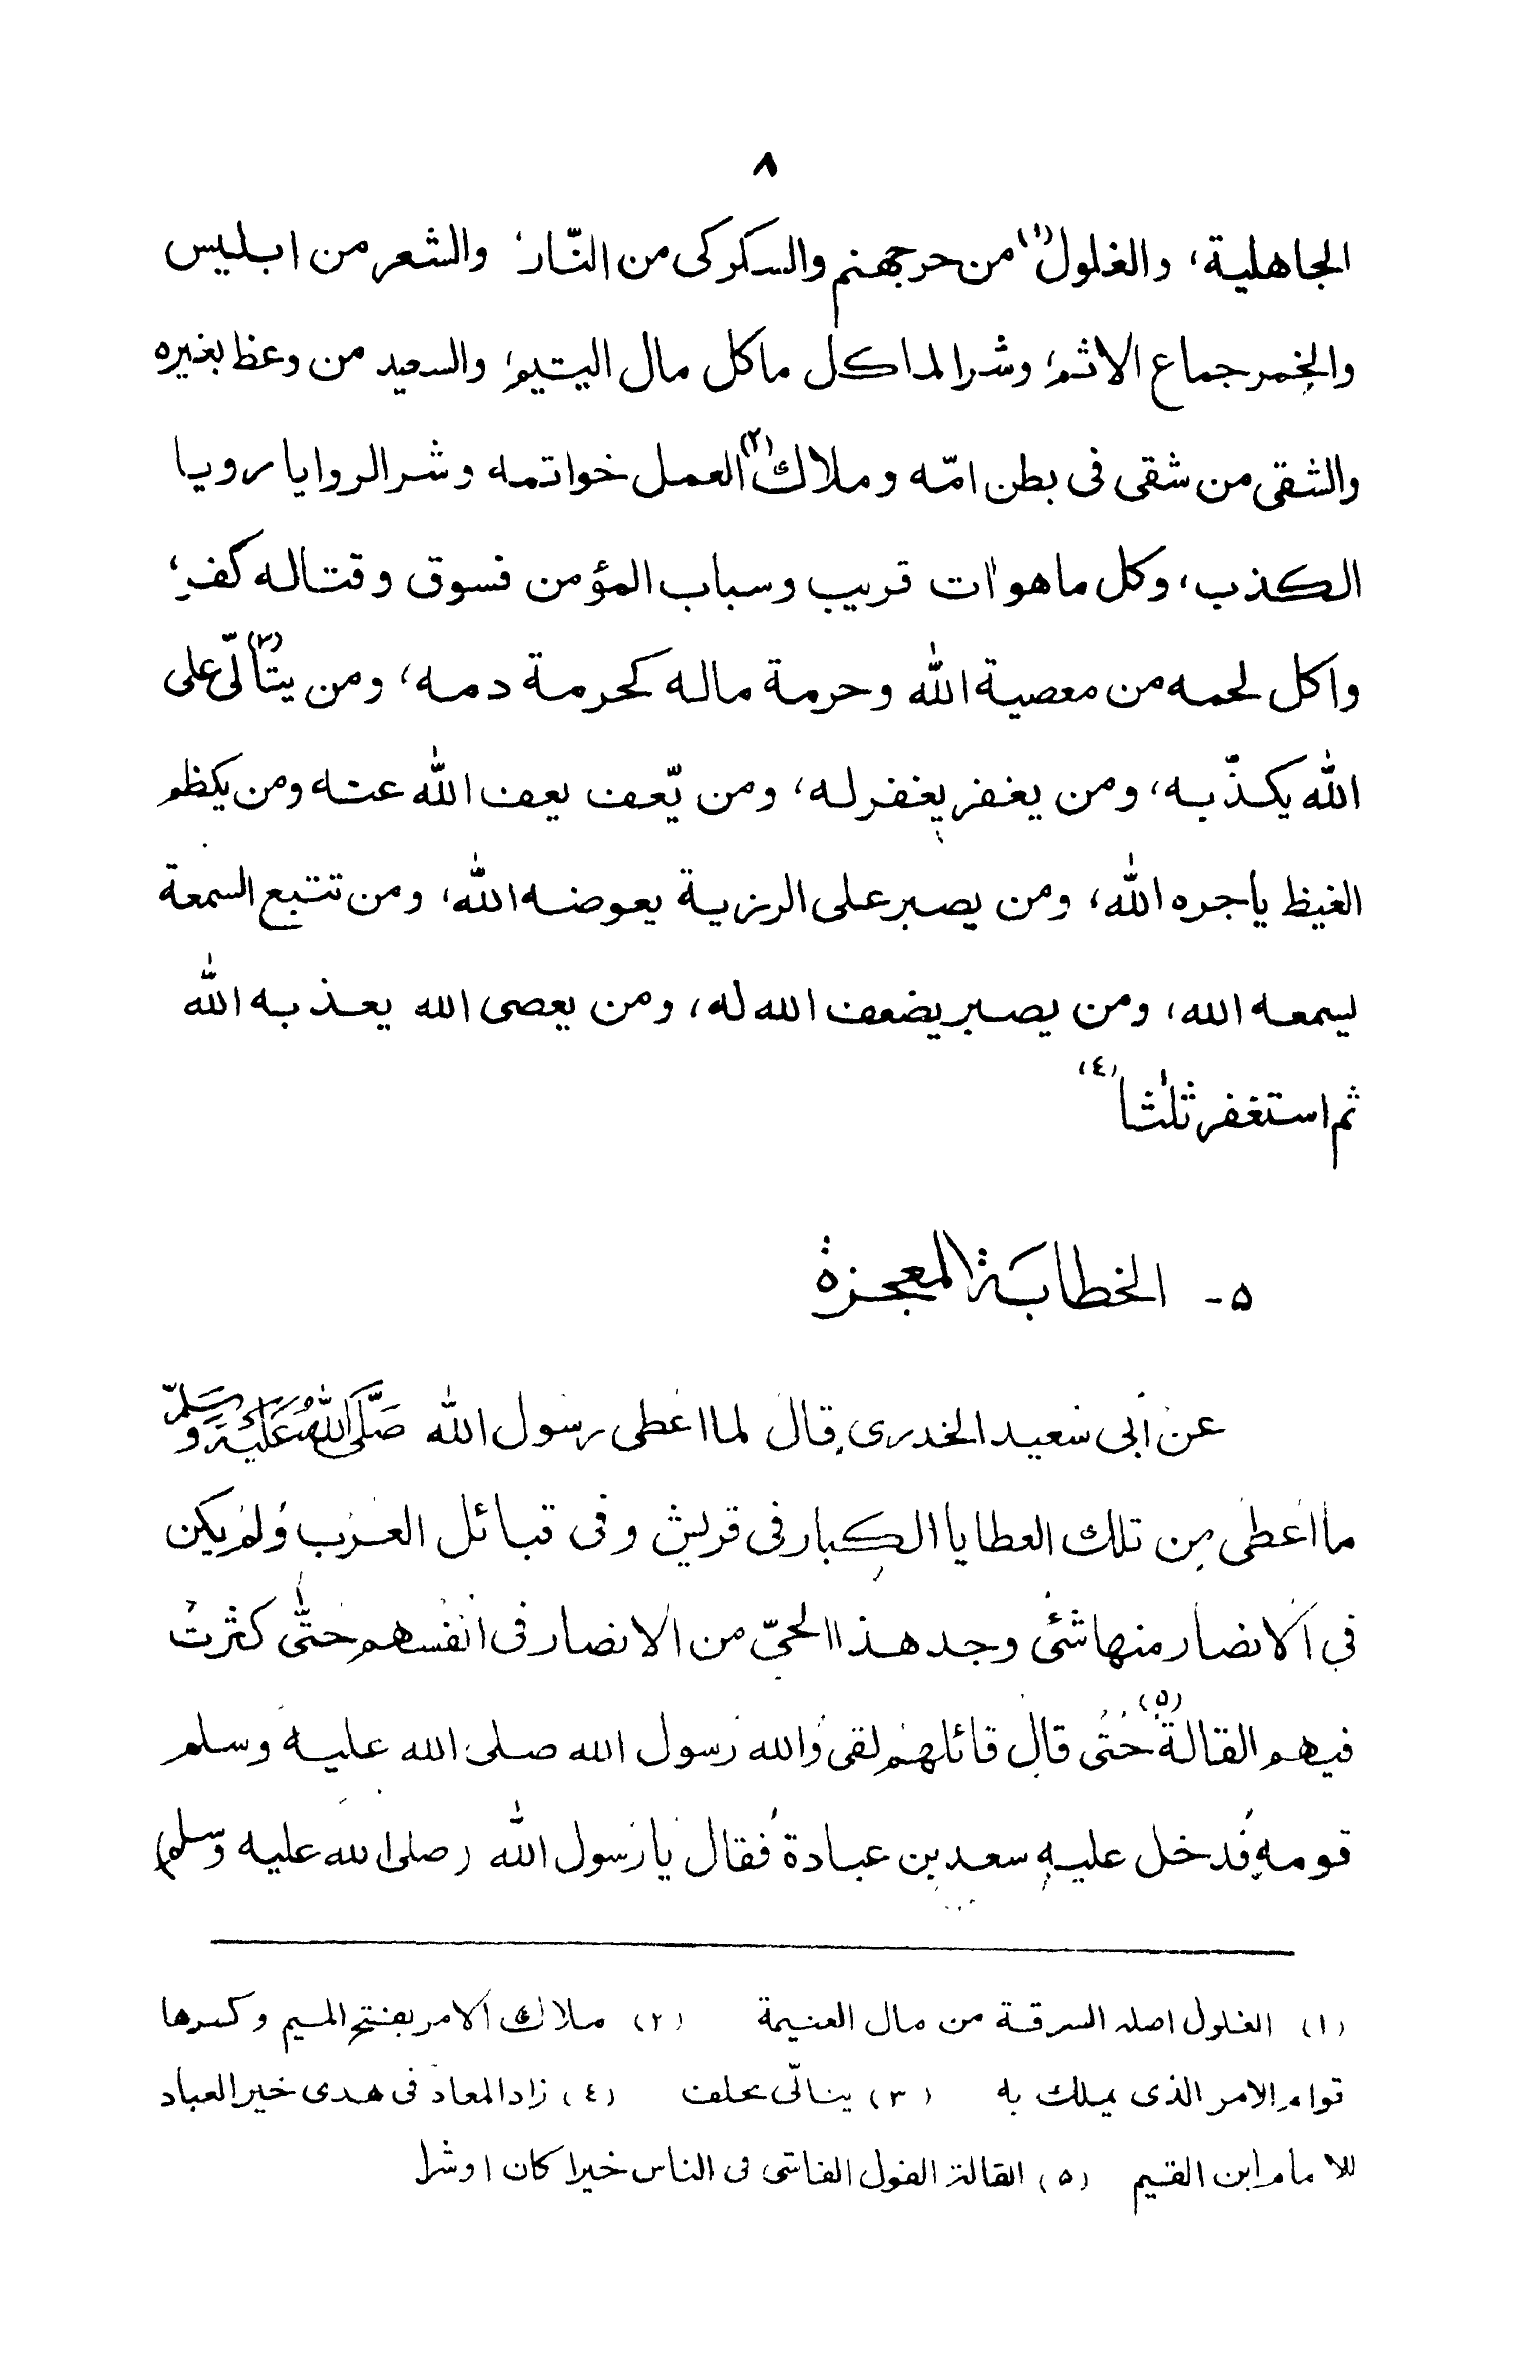 ٨
الجاهلية، والغلول(١) من حر جهنم والسكر كى من النّار، والشعر من ابليس
والخمر جماع الاثم، وشر المأكل ماكل مال اليتيم، والسعيد من وعظ بغيره
والشقى من شقى فى بطن امّه وملاك(٢) العمل خواتمه وشر الروايا رويا
الكذب، وكل ما هواٰت قريب وسباب المؤمن فسوق وقتاله كفر،
واكل لحمه من معصية الله وحرمة ماله كحرمة دمه، ومن يتألّى(٣) على
الله يكذّبه، ومن يغفر يغفر له، ومن يّعف يعف الله عنه ومن يكظم
الغيظ ياجره الله، ومن يصبر على الرزية يعوضه الله، ومن تتبع السمعة
ليسمعه الله، ومن يصبر يضعف الله له، ومن يعصى الله يعذبه الله
ثم استغفر ثلٰثا (٤)
٥- الخطابة المعجزة
عن أبى سعيد الخدرى قال لما اعطى رسول الله صَلَّى اللهُ عَلَيْهِ وَسَلَّمَ
ما اعطى من تلك العطايا الكبار فى قريش وفى قبائل العرب ولم يكن
فى الانصار منها شئ وجد هذا الحىّ من الانصار فى انفسهم حتّٰى كثرت
فيهم القالة(٥) حتى قال قائلهم لقى والله رسول الله صلى الله عليه وسلم
قومه فدخل عليه سعد بن عبادة فقال يا رسول الله (صلى الله عليه وسلم)
(١) الغلول اصله السرقة من مال الغنيمة (٢) ملاك الامر بفتح الميم وكسرها
قوام الامر الذى يملك به (٣) يتالّى يحلف (٤) زاد المعاد فى هدى خير العباد
للامام ابن القيم (٥) القالة القول الفاشى فى الناس خيرا كان او شرا